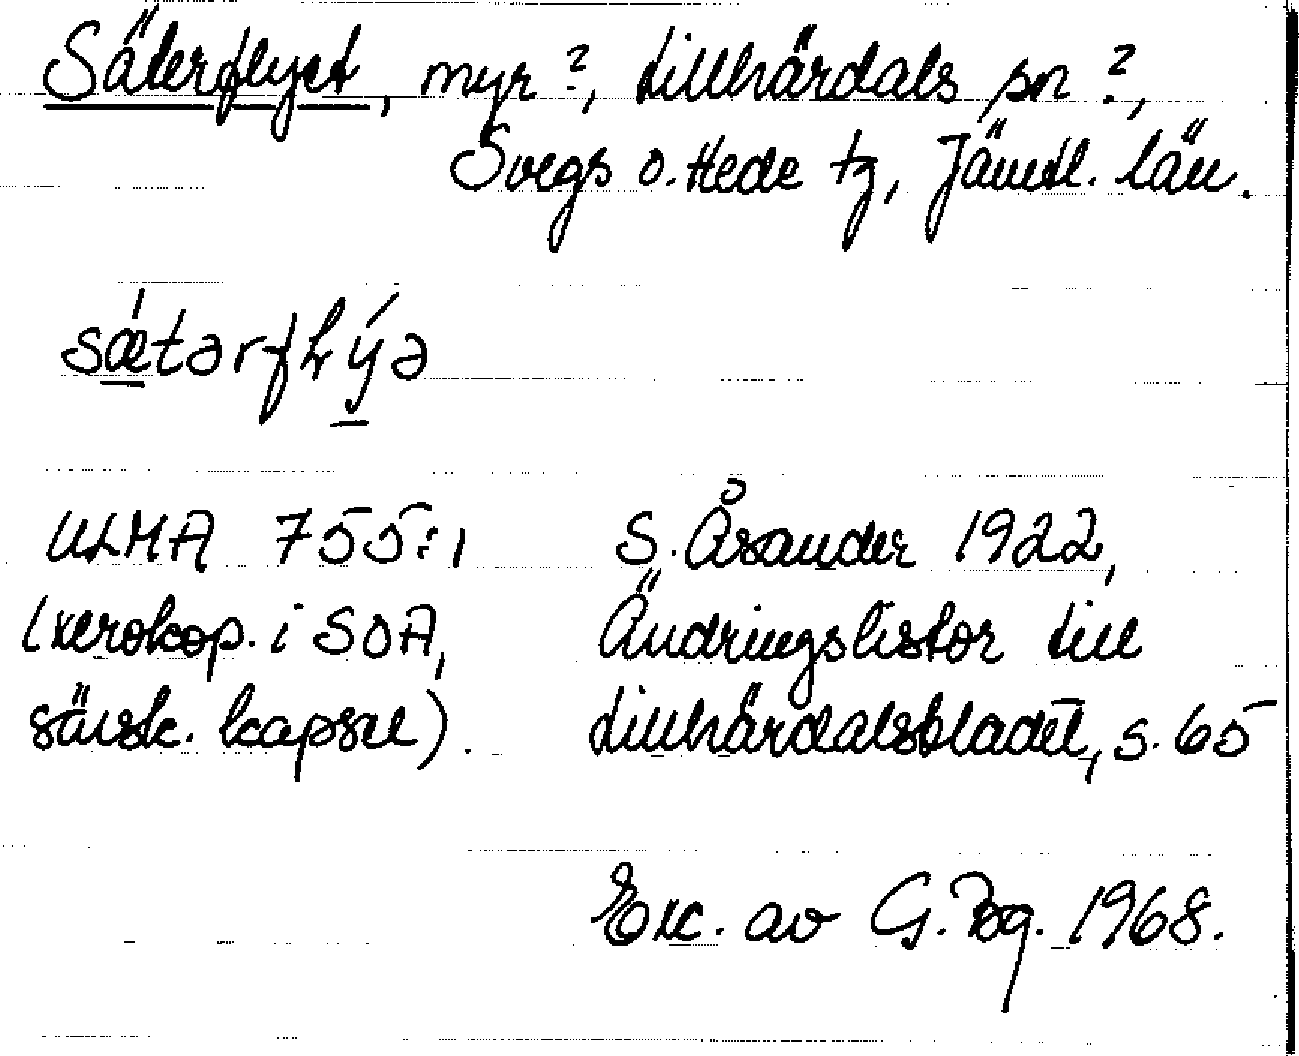 Säterflyet, myr?, Lillhärdals sn?,
Svegs o. Hede tg, Jämtl. län.
sǽtərfɫýə
ULMA 755:1 S. Åsander 1922,
(xerokop. i SOA, Ändringslistor till
särsk. kapsel). Lillhärdalsbladet, s. 65
Exc. av G. Bg. 1968.